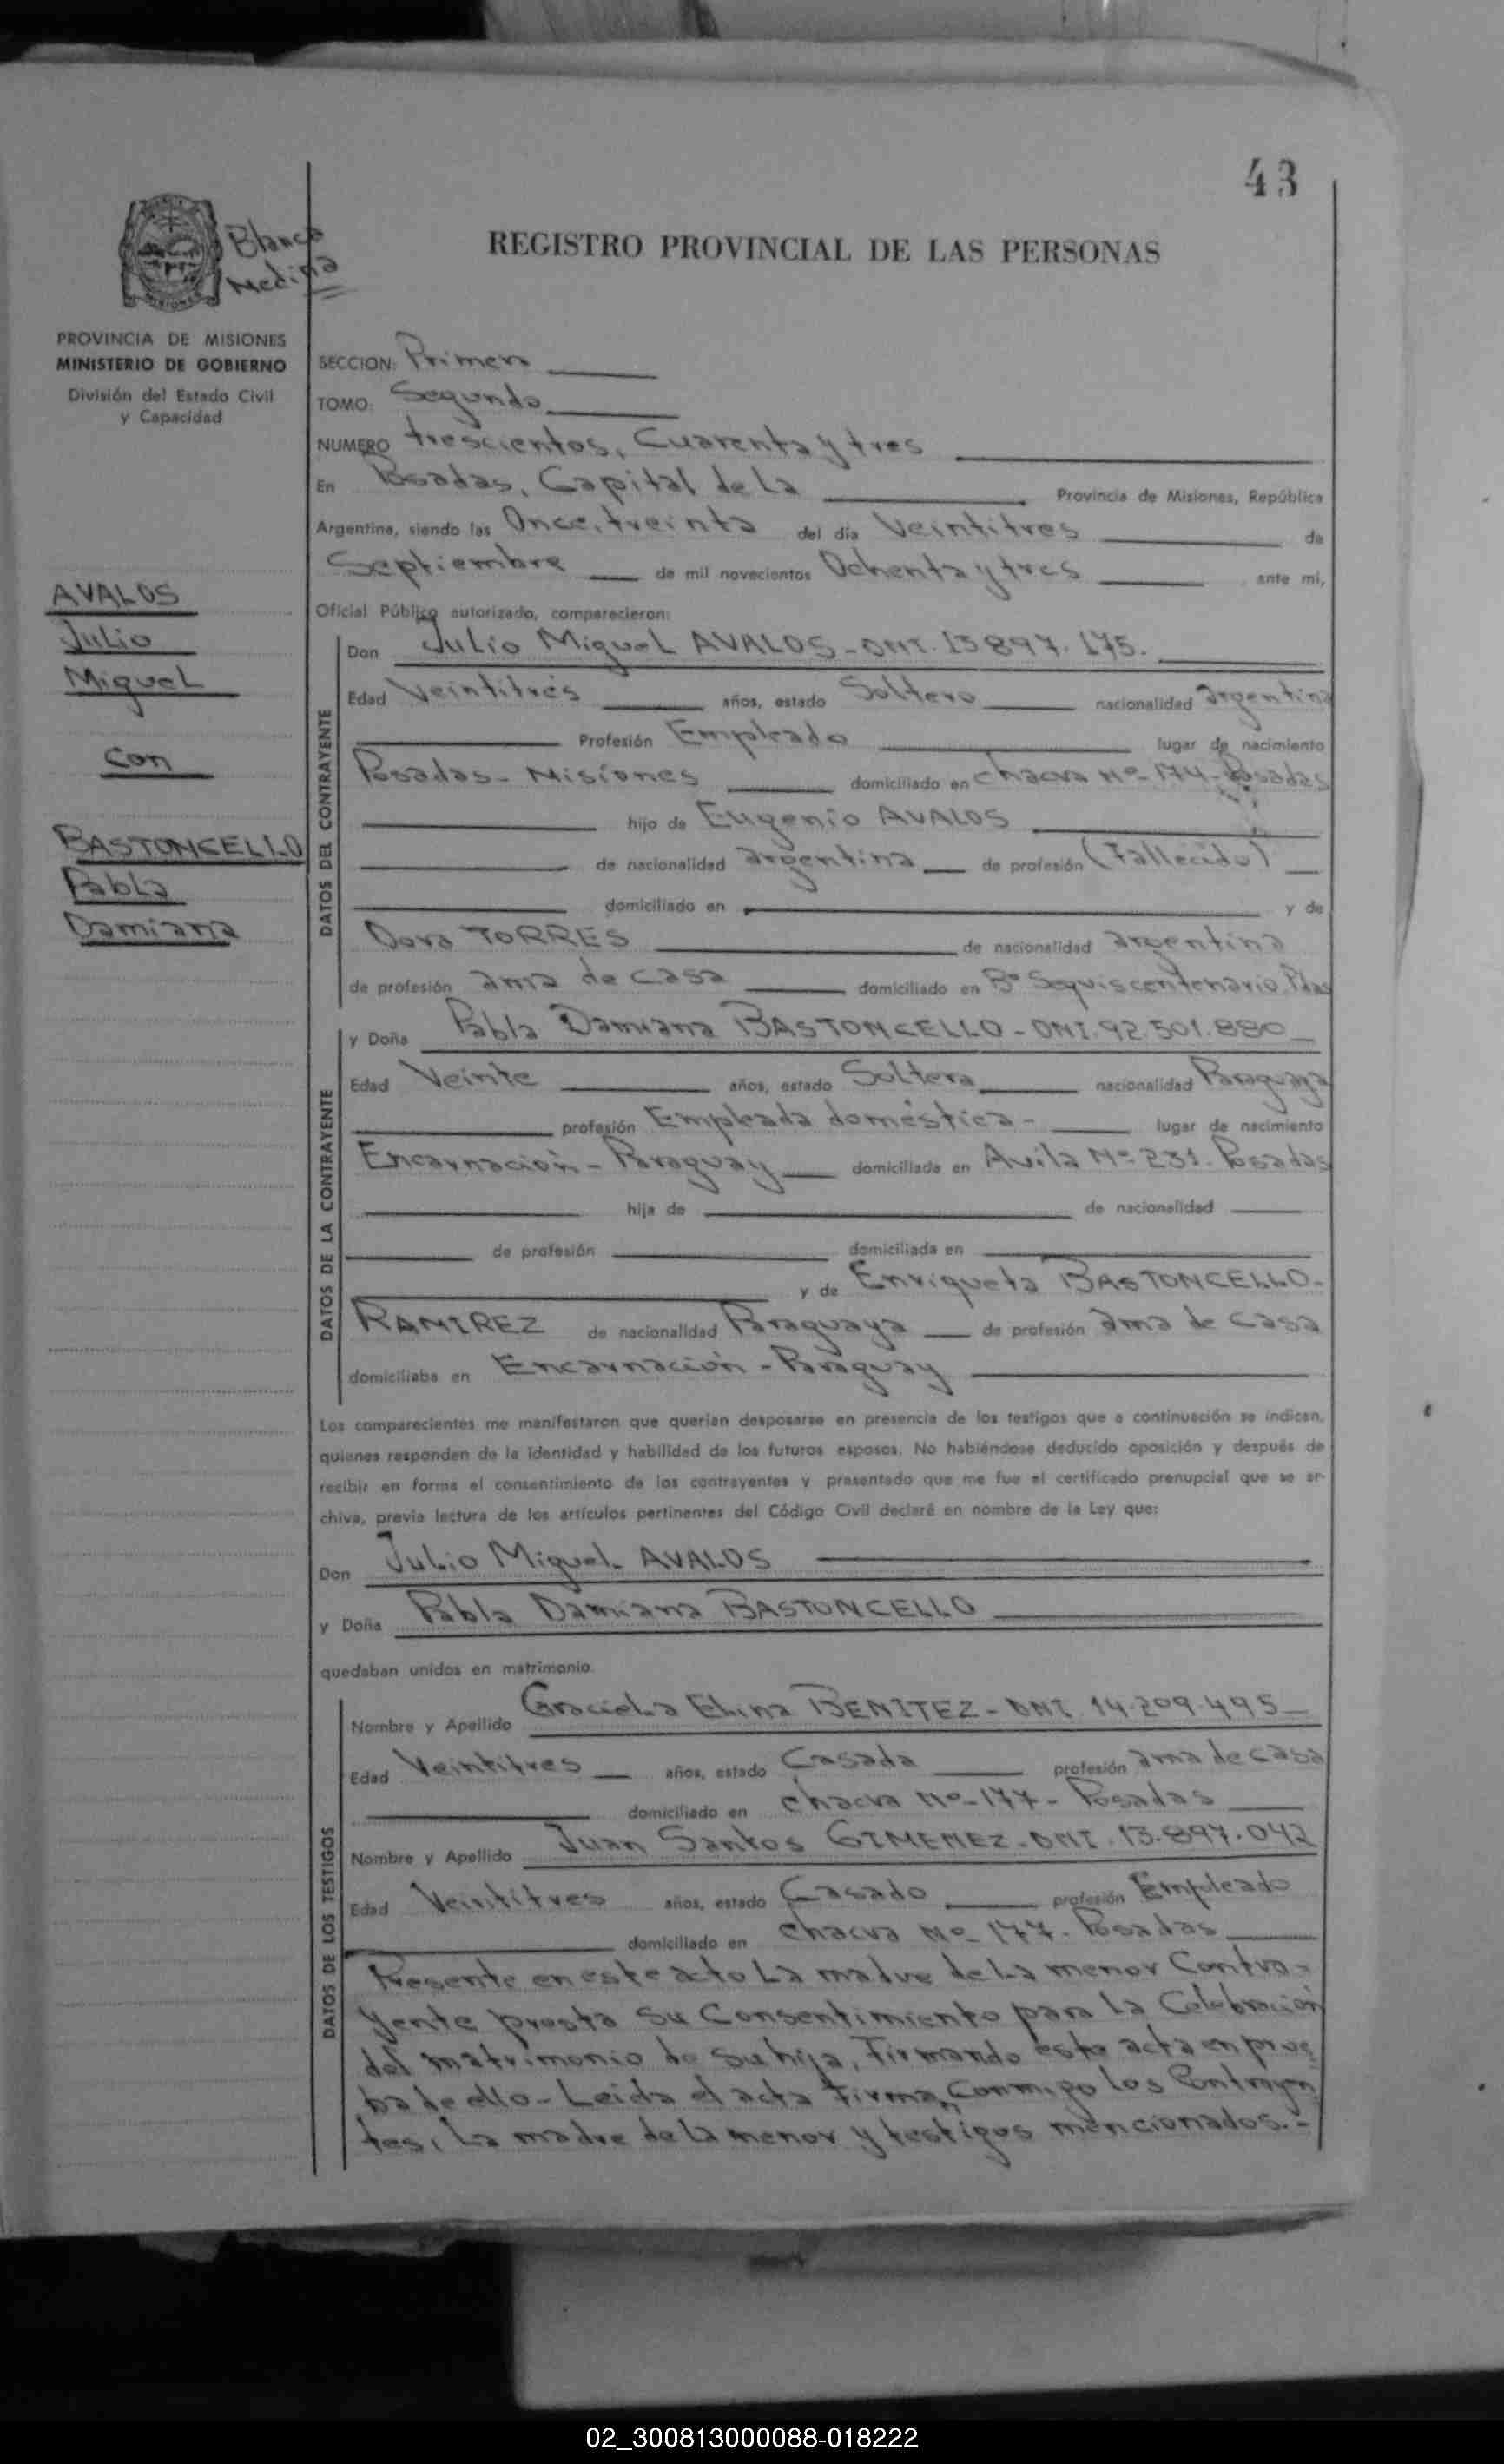 43
Blanca
Medina
REGISTRO PROVINCIAL DE LAS PERSONAS
MISIONES
PROVINCIA DE MISIONES
MINISTERIO DE GOBIERNO
División del Estado Civil
y Capacidad
AVALOS
Julio
Miguel
con
BASTONCELLO
Pabla
Damiana
SECCION: Primera
TOMO: Segundo
NUMERO trescientos, Cuarenta y tres
En Posadas, Capital de la Provincia de Misiones, República
Argentina, siendo las Once, treinta del día Veintitres de
Septiembre de mil novecientos Ochenta y tres ante mi,
Oficial Público autorizado, comparecieron:
DATOS DEL CONTRAYENTE
Don Julio Miguel AVALOS - DNI. 13 897. 175.
Edad Veintitrés años, estado Soltero nacionalidad argentina
Profesión Empleado lugar de nacimiento
Posadas - Misiones domiciliado en chacra Nº 174 - Posadas
hijo de Eugenio AVALOS
de nacionalidad argentina de profesión (Fallecido)
domiciliado en y de
Dora TORRES de nacionalidad argentina
de profesión ama de casa domiciliado en Bº Sequiscentenario. Pdas
DATOS DE LA CONTRAYENTE
y Doña Pabla Damiana BASTONCELLO - DNI. 92.501.880
Edad Veinte años, estado Soltera nacionalidad Paraguaya
profesión Empleada doméstica - lugar de nacimiento
Encarnación - Paraguay domiciliada en Avila Nº 231. Posadas
hija de de nacionalidad
de profesión domiciliada en
y de Enriqueta BASTONCELLO-
RAMIREZ de nacionalidad Paraguaya de profesión ama de casa
domiciliaba en Encarnación - Paraguay
Los comparecientes me manifestaron que querían desposarse en presencia de los testigos que a continuación se indican,
quienes responden de la identidad y habilidad de los futuros esposos. No habiéndose deducido oposición y después de
recibir en forma el consentimiento de los contrayentes y presentado que me fue el certificado prenupcial que se ar-
chiva, previa lectura de los artículos pertinentes del Código Civil declaré en nombre de la Ley que:
Don Julio Miguel AVALOS
y Doña Pabla Damiana BASTONCELLO
quedaban unidos en matrimonio.
DATOS DE LOS TESTIGOS
Nombre y Apellido Graciela Elina BENITEZ - DNI 14.209.495
Edad Veintitres años, estado Casada profesión ama de casa
domiciliado en chacra Nº 177 - Posadas
Nombre y Apellido Juan Santos GIMENEZ - DNI. 13.897.042
Edad Veintitres años, estado Casado profesión Empleado
domiciliado en chacra Nº 177 - Posadas
Presente en este acto la madre de la menor Contra-
yente presta su Consentimiento para la Celebración
del matrimonio de su hija, Firmando este acta en prue
ba de ello - Leida el acta Firman Conmigo los Contrayen
tes, la madre de la menor y testigos mencionados.-
02_300813000088-018222